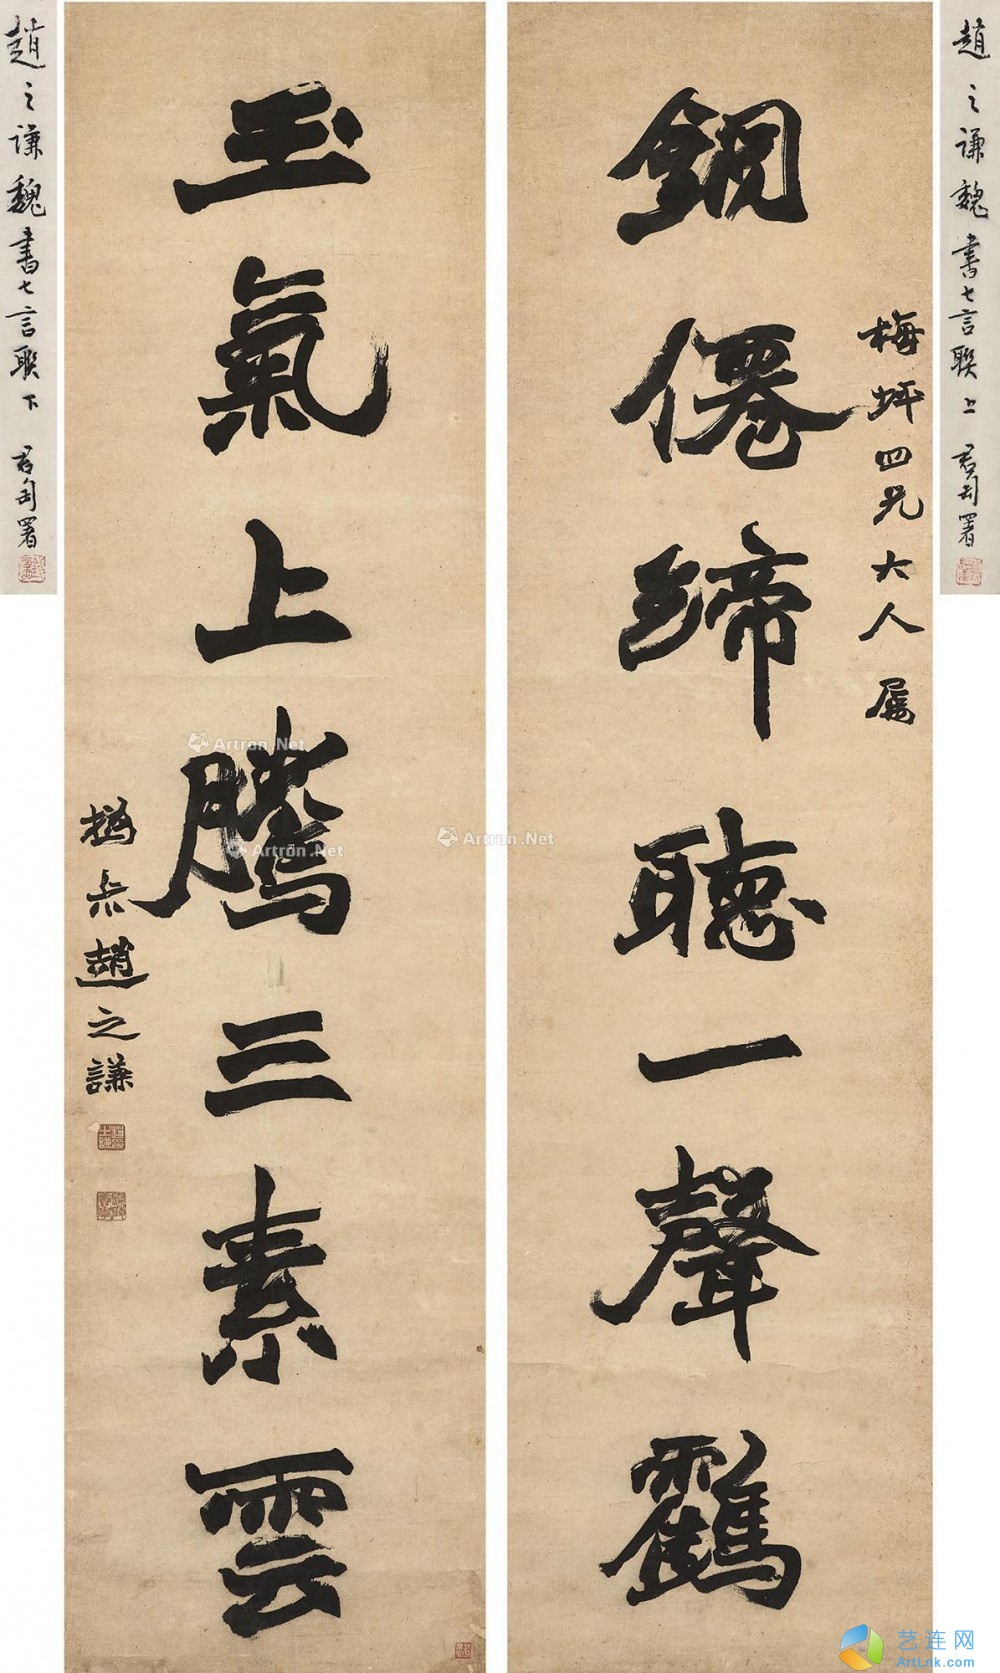 趙之谦魏書七言聯上 君匋署
梅坪四兄大人屬
銅僊締聽一聲鸖
玉氣上騰三素雲
撝叔趙之謙
趙之谦魏書七言聯下 君匋署
Artron.Net
Artron.Net
Artron.Net
艺连网
ArtLnk.com